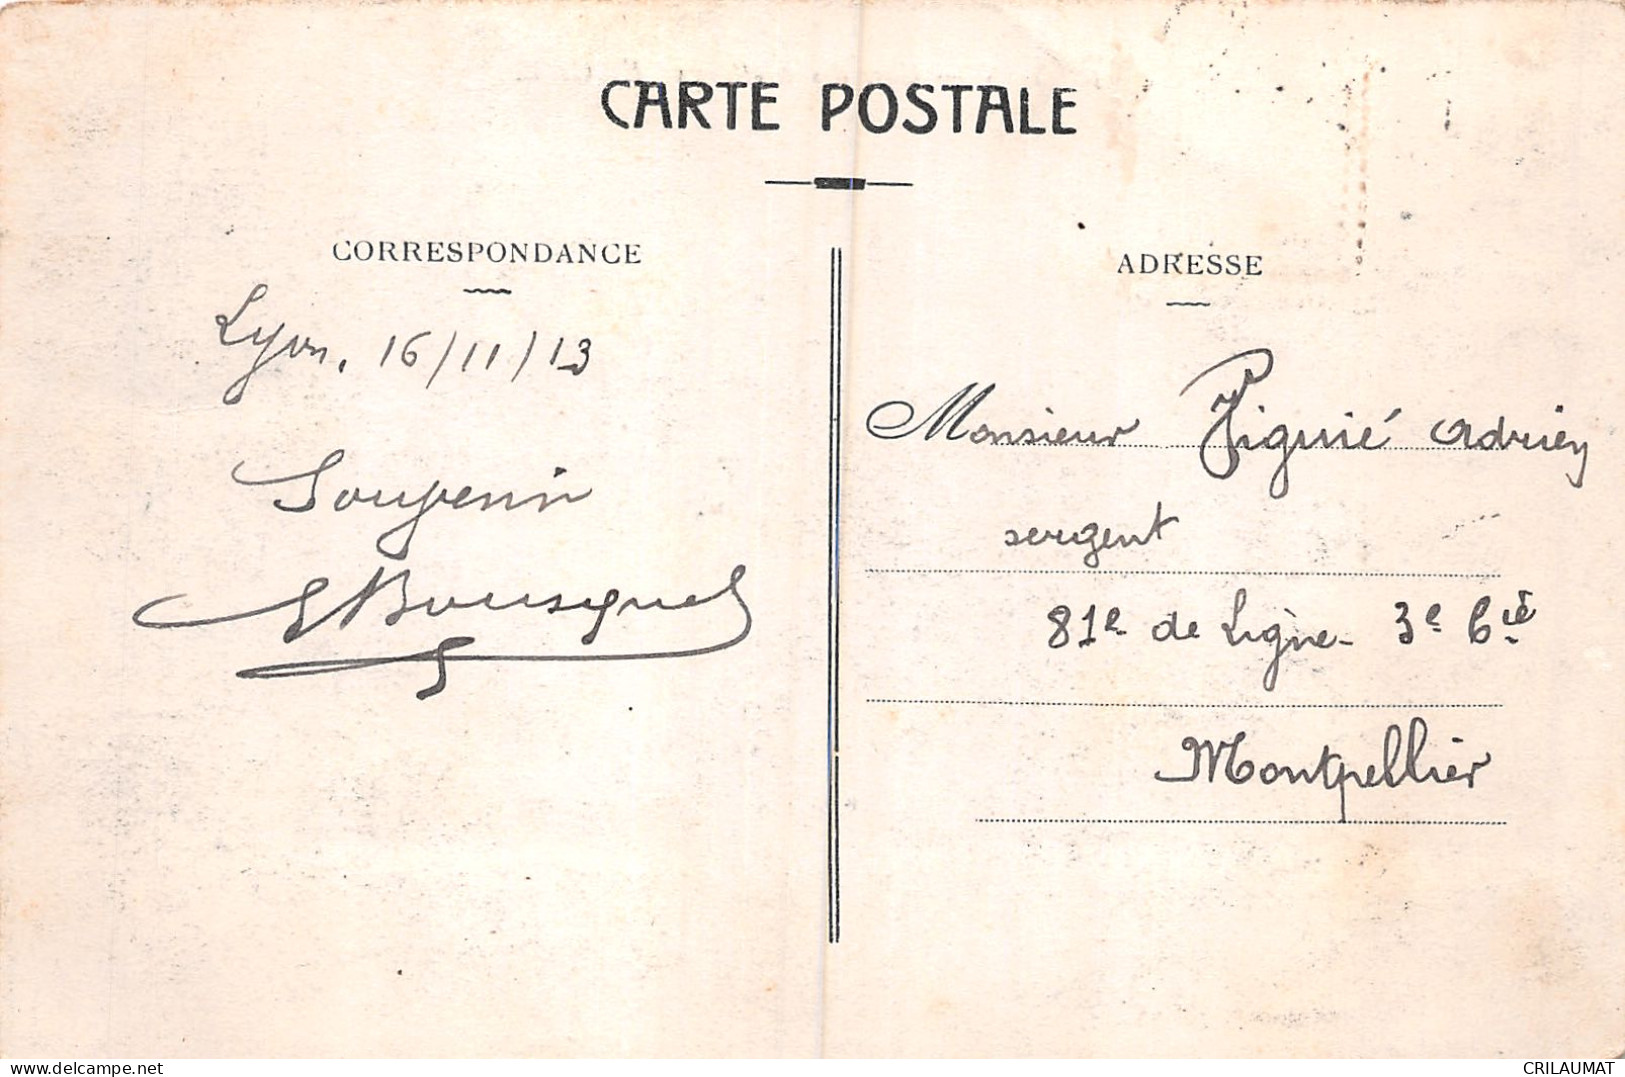 CARTE POSTALE
CORRESPONDANCE
Lyon, 16/11/13
Souvenir
Bousquet
ADRESSE
Monsieur Piguié Adrien
sergent
81e de Ligne - 3e Cie
Montpellier
delcampe.net
CRILAUMAT